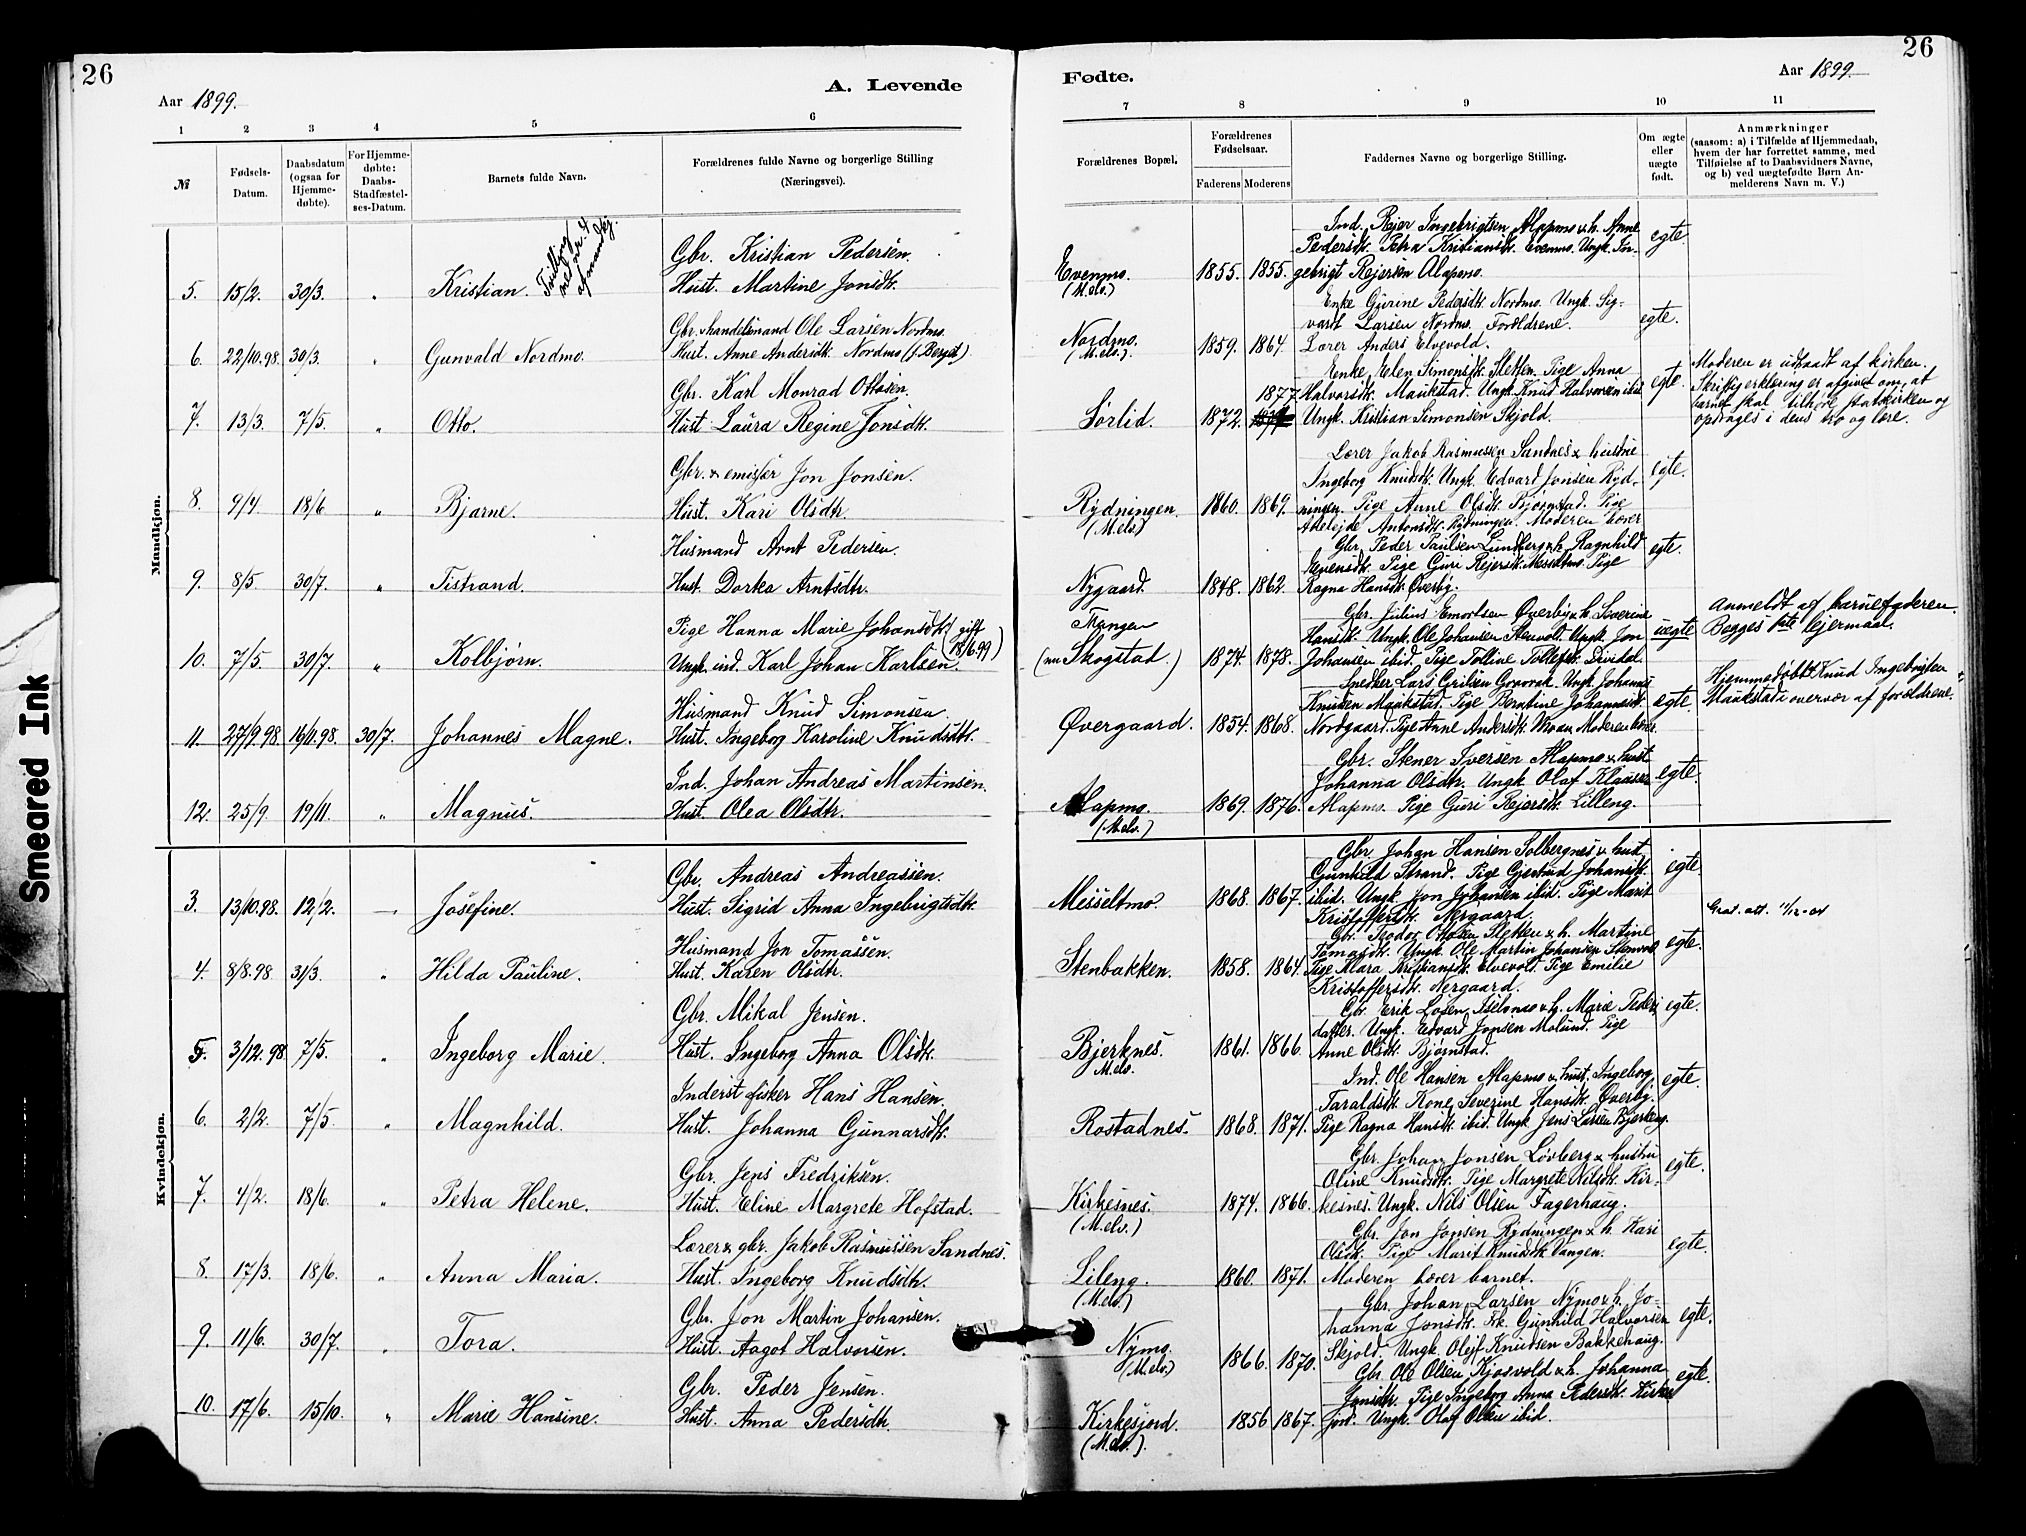 26
A. Levende
Aar 1899.
1 2 3 4 5 6
№
Fødsels-
Datum.
Daabsdatum
(ogsaa for
Hjemme-
døbte).
For Hjemme-
døbte:
Daabs-
Stadfæstel-
ses-Datum.
Barnets fulde Navn.
Forældrenes fulde Navne og borgerlige Stilling
(Næringsvei).
Mandkjøn.
Tvilling
med nr. 4
af mandkj.
Gbr. Kristian Pedersen.
5. 15/2. 30/3. " Kristian. Hust. Martine Jonsdtr.
Gbr. & handelsmand Ole Larsen Nordmo.
6. 22/10.98. 30/3. " Gunvald Nordmo. Hust. Anne Andersdtr. Nordmo (f. Berget)
Gbr. Karl Monrad Ottosen.
7. 13/3. 7/5. " Otto. Hust. Laura Regine Jonsdtr.
Gbr. & emisfær Jon Jonsen.
8. 9/4 18/6 " Bjarne. Hust. Kari Olsdtr.
Husmand Arnt Pedersen.
9. 8/5. 30/7. " Tistrand. Hust. Dorka Arntsdtr.
Pige Hanna Marie Johansdtr. (gift 18/6.99)
10. 7/5. 30/7. " Kolbjørn. Ungk. ind. Karl Johan Karlsen.
Husmand Knud Simonsen
11. 27/9.98. 16/11.98. 30/7. Johannes Magne. Hust. Ingeborg Karoline Knudsdtr.
Ind. Johan Andreas Martinsen.
12. 25/9. 19/11. " Magnus. Hust. Olea Olsdtr.
Kvindekjøn.
Gbr. Andreas Andreassen.
3. 13/10.98. 12/2. — Josefine. Hust. Sigrid Anna Ingebrigtsdtr.
Husmand Jon Tomassen.
4. 8/8.98. 31/3. " Hilda Pauline. Hust. Karen Olsdtr.
Gbr. Mikal Jensen.
5. 3/12.98. 7/5. " Ingeborg Marie. Hust. Ingeborg Anna Olsdtr.
Inderst fisker Hans Hansen.
6. 2/2. 7/5. " Magnhild. Hust. Johanna Gunnarsdtr.
Gbr. Jens Fredriksen.
7. 4/2. 18/6. " Petra Helene. Hust. Eline Margrete Hofstad.
Lærer & gbr. Jakob Rasmussen Sandnes.
8. 17/3. 18/6. " Anna Maria. Hust. Ingeborg Knudsdtr.
Gbr. Jon Martin Johansen.
9. 11/6. 30/7. " Tora. Hust. Aagot Halvorsen.
Gbr. Peder Jensen.
10. 17/6. 15/10. " Marie Hansine. Hust. Anna Pedersdtr.
Smeared Ink
26
Fødte.
Aar 1899.
7 8 9 10 11
Forældrenes Bopæl.
Forældrenes
Fødselsaar.
Faderens Moderens
Faddernes Navne og borgerlige Stilling.
Om ægte
eller
uægte
født.
Anmærkninger
(saasom: a) i Tilfælde af Hjemmedaab,
hvem der har forrettet samme, med
Tilføielse af to Daabsvidners Navne,
og b) ved uægtefødte Børn An-
melderens Navn m. V.)
Ind. Rejer Ingebrigtsen Alapmo & h. Anne
Pedersdtr. Petra Kristiansdtr. Evenmo. Ungk. In- egte.
Evenmo. 1855. 1855. gebrigt Rejersen Alapmo.
(M.elv.)
Enke Gurine Pedersdtr. Nordmo. Ungk. Sig-
vardt Larsen Nordmo. Forældrene. egte.
Nordmo. 1859. 1864. Lærer Anders Elvevold.
(M.elv.)
Enke Elen Simonsdtr. Sletten. Pige Anna
1877. Halvorsdtr. Maukstad. Ungk. Knud Halvorsen ibid egte.
Sørlid. 1872. Ungk. Kristian Simonsen Skjold.
Moderen er udtraadt af kirken.
Skriftlig erklæring er afgivet om, at
barnet skal tilhøre statskirken og
opdrages i dens tro og lære.
Lærer Jakob Rasmussen Sandnes & hustru
Ingeborg Knudsdtr. Ungk. Edvard Jonsen Ryd- egte.
Rydningen. 1860. 1869. ningen. Pige Anne Olsdtr. Bjørnstad. Pige
(M.elv.) Antonsdtr. Rydningen. Moderen bærer
Gbr. Peder Paulsen Lundberg & h. Ragnhild
Evensdtr. Pige Guri Rejersdtr. Messeltmo. Pige egte.
Nygaard. 1848. 1862. Ragna Hansdtr. Øverby.
Gbr. Julius Øverby & h. Severine
Trangen Hansdtr. Ungk. Ole Johansen Stenvolt. Ungk. Jon uægte
(nu Skogstad.) 1874. 1878. Johansen ibid. Pige Tolline Tollefsdtr. Dividal.
Anmeldt af barnefaderen.
Begges 1ste lejermaal.
Snedker Lars Ungk. Johannes
Knudsen Maukstad. Pige Berntine Johannesdtr. egte.
Øvergaard. 1854. 1868. Nordgaard. Pige Anne Andersdtr. Moan. Moderen bærer.
Hjemmedøbt af Knud Ingebrigtsen
Maukstad i overvær af forældrene.
Gbr. Stener Iversen Alapmo & hust.
Johanna Olsdtr. Ungk. Olaf Klausen egte.
Alapmo. 1869. 1876. Alapmo. Pige Guri Rejersdtr. Lilleng.
(M.elv.)
Gbr. Johan Hansen Solbergnes & hust.
Gunhild Strand. Pige Gjertrud Johansdtr. egte.
Messeltmo. 1868. 1867. ibid. Ungk. Jon Johansen ibid. Pige Marit
Kristoffersdtr. Nergaard.
Grat. att. 11/12-04
Gbr. Teodor Ottosen Sletten & h. Martine
Tomasdtr. Ungk. Ole Martin Johansen Stenvol egte.
Stenbakken. 1858. 1864. Pige Mara Kristiansdtr. Elvevold. Pige Emilie
Kristoffersdtr. Nergaard.
Gbr. Erik & h. Marie Peders- egte.
datter. Ungk. Edvard Jonsen Molund. Pige
Bjerknes. 1861. 1866. Anne Olsdtr. Bjørnstad.
M.elv.
Ind. Ole Hansen Alapmo & hust. Ingeborg
Taraldsdtr. Kone Severine Hansdtr. Øverby. egte.
Rostadnes. 1868. 1871. Pige Ragna Hansdtr. ibid. Ungk. Jens Larsen Bjerkeng.
Gbr. Johan Jonsen Løvberg & hustru
Oline Knudsdtr. Pige Margrete Nilsdtr. Kir- egte.
Kirkesnes. 1874. 1866. kesnes. Ungk. Nils Olsen Fagerhaug.
(M.elv.)
Gbr. Jon Jonsen Rydningen & h. Kari
Olsdtr. Pige Marit Knudsdtr. Vangen. egte.
Lileng. 1860. 1871. Moderen bærer barnet.
(M.elv.)
Gbr. Johan Larsen Nymo & h. Jo-
hanna Jonsdtr. Frk. Gunhild Halvorsen egte.
Nymo. 1866. 1870. Skjold. Ungk. Olof Knudsen Bakkehaug.
(M.elv.)
Gbr. Ole Olsen Kjosvold & h. Johanna
Jonsdtr. Pige Ingeborg Anna Pedersdtr. Kirkes- egte.
Kirkesjord. 1856 1867. jord. Ungk. Olaf Olsen ibid.
(M.elv.).